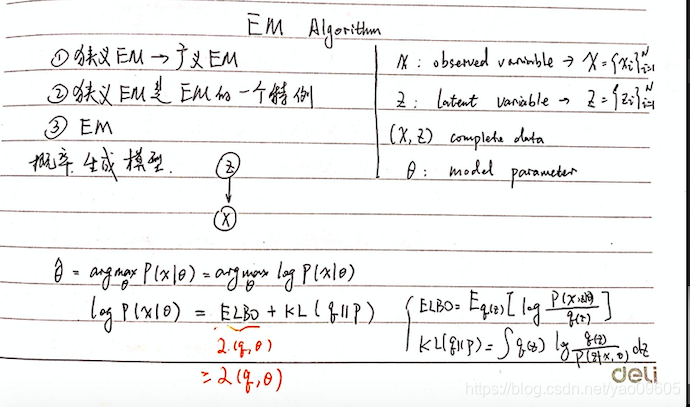 EM Algorithm
① 狭义EM → 广义EM
② 狭义EM是EM的一个特例
③ EM
概率生成模型.
Z
X
X : observed variable → X = {xi}ᵢ₌₁ᴺ
Z : latent variable → Z = {zi}ᵢ₌₁ᴺ
(X, Z) complete data
θ : model parameter
θ̂ = argmax_θ P(X|θ) = argmax_θ log P(X|θ)
log P(X|θ) = ELBO + KL(q||p)
L(q,θ)
≥ L(q,θ)
ELBO = E_q(z)[log P(X,Z|θ)/q(z)]
KL(q||p) = ∫ q(z) log q(z)/P(Z|X,θ) dz
deli
https://blog.csdn.net/yao09605